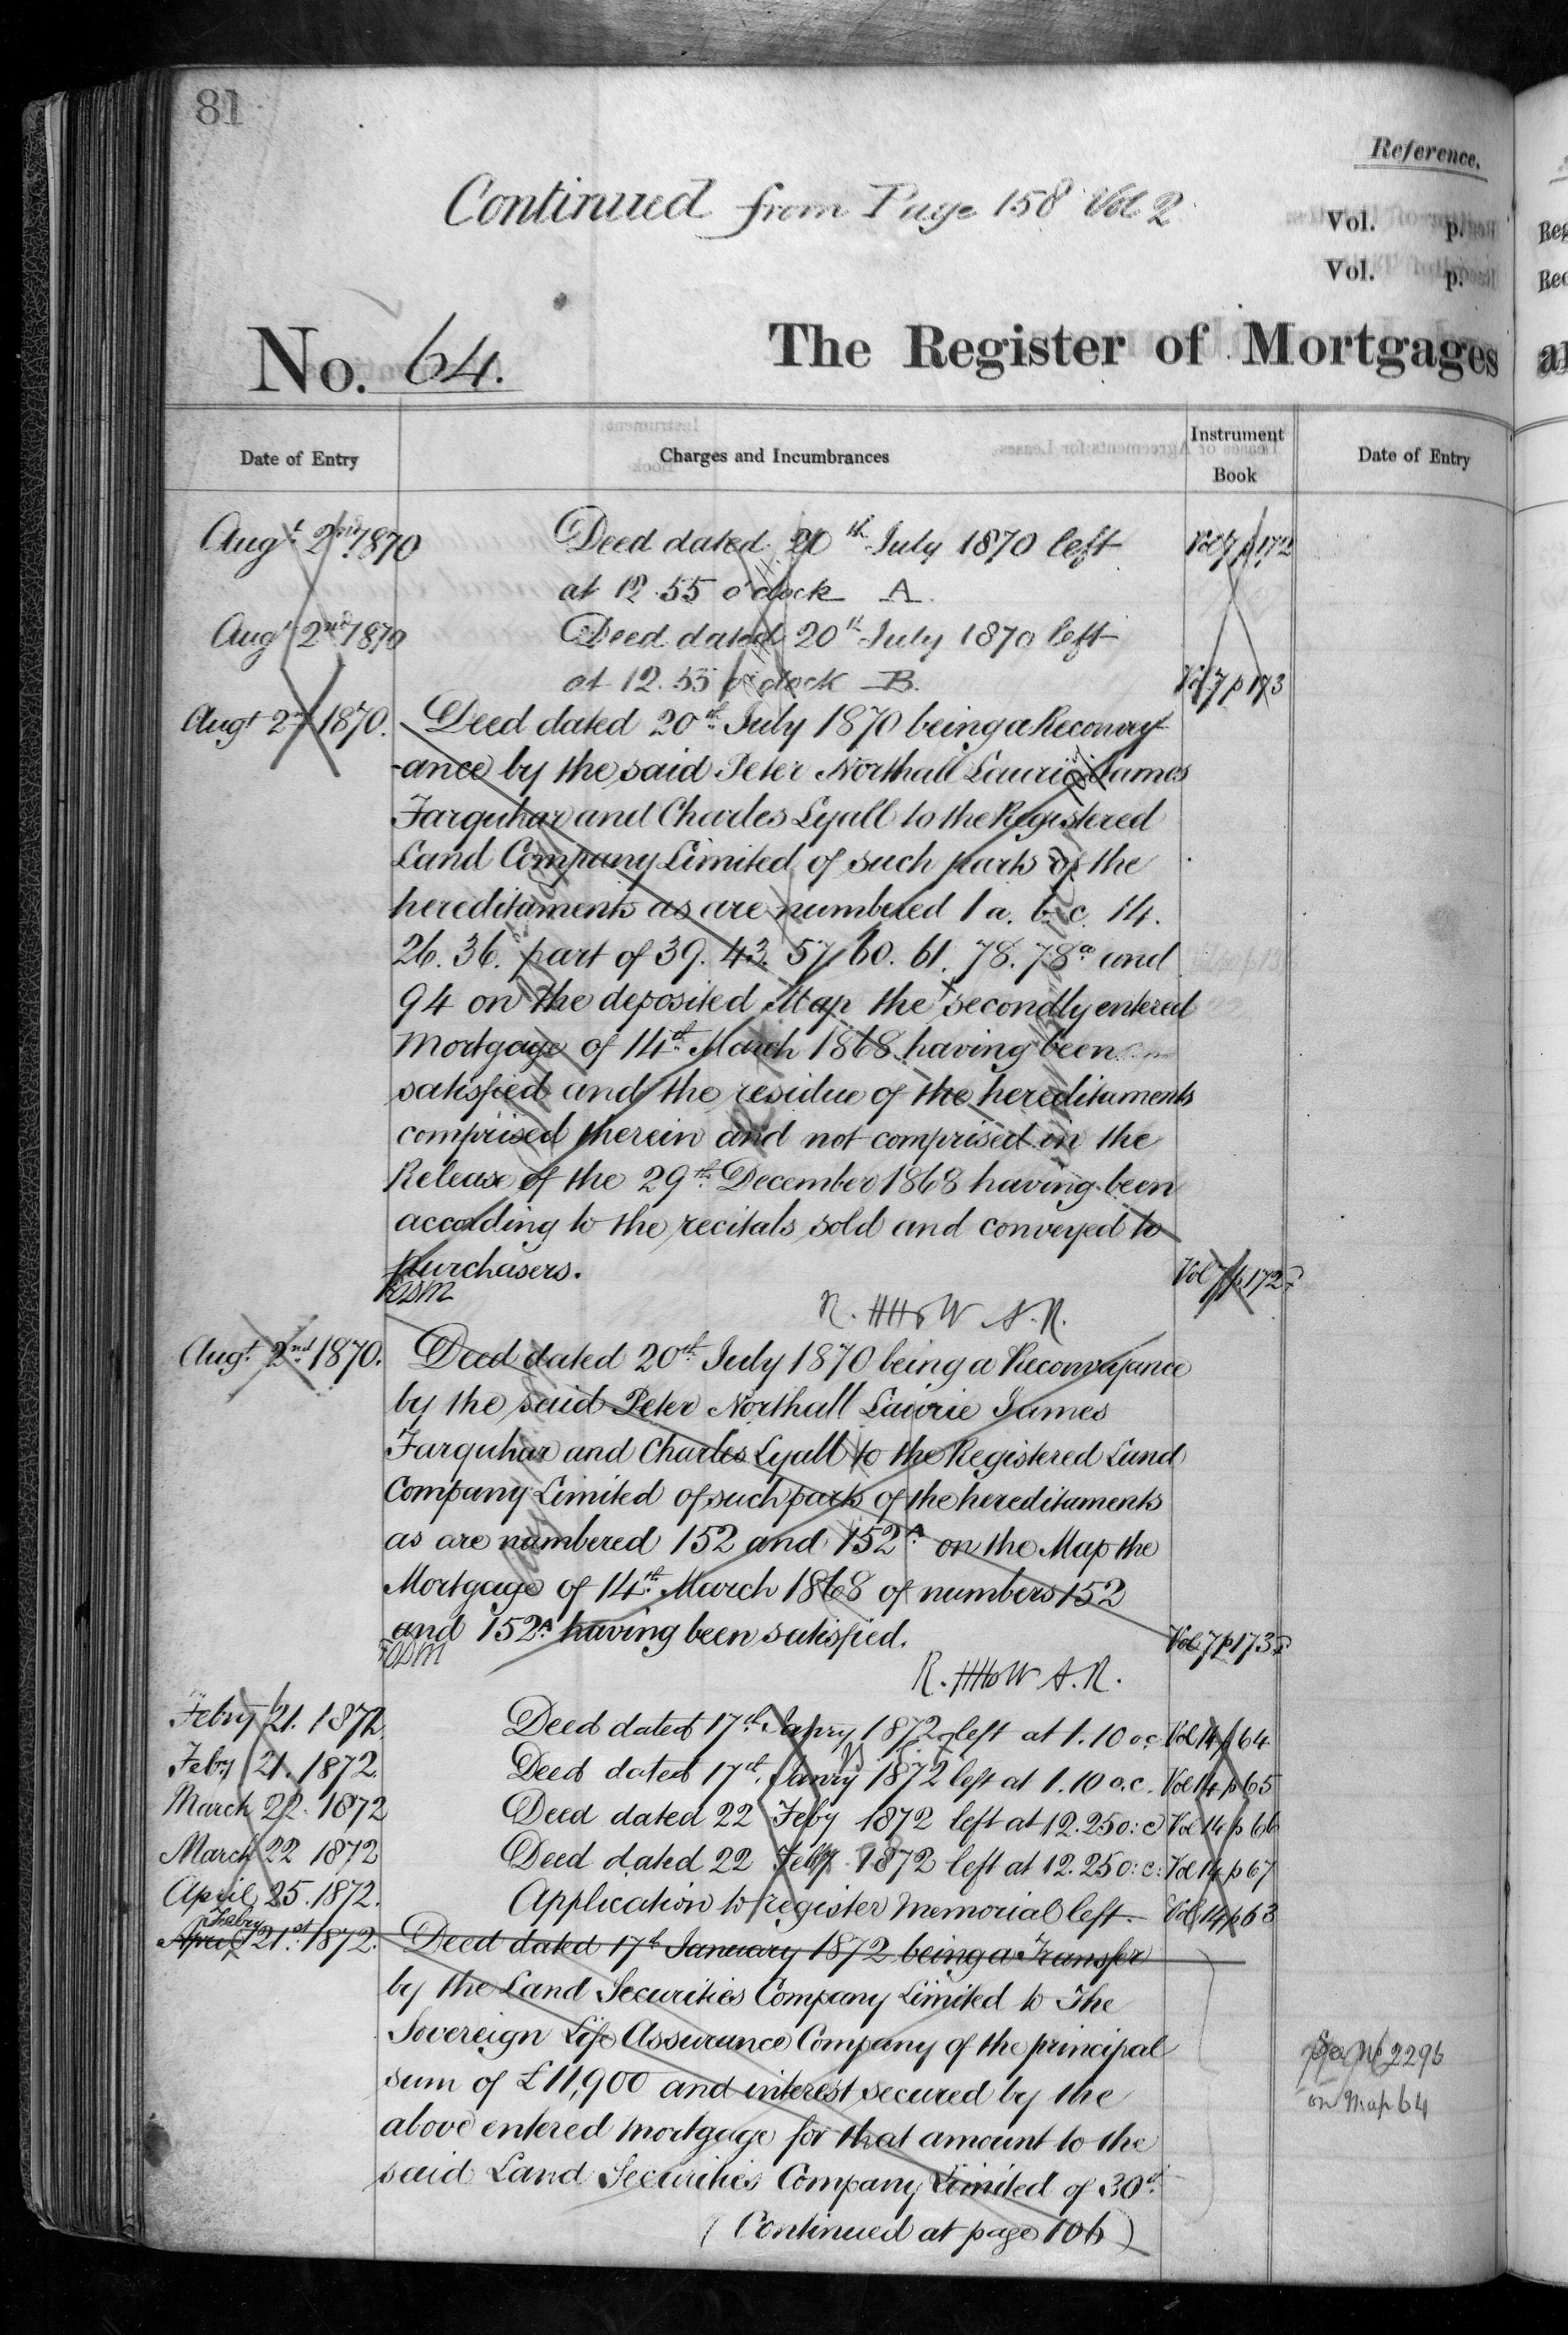 81
Reference.
Continued from Page 158 Vol 2
Vol. p.
Vol. p.
No. 64.
The Register of Mortgages
Date of Entry
Charges and Incumbrances
Instrument Book
Date of Entry
Augt 2nd 1870 Deed dated 20th July 1870 left Vol 7 p 172
at 12.55 o'clock A.
Augt 2nd 1870 Deed dated 20th July 1870 left
at 12.55 o'clock B. Vol 7 p 173
Augt 2nd 1870. Deed dated 20th July 1870 being a Reconvey
-ance by the said Peter Northall Laurie James
Farquhar and Charles Lyall to the Registered
Land Company Limited of such parts of the
hereditaments as are numbered 1 a. b. c. 14.
26. 36. part of 39. 43. 57. 60. 61. 78. 78a and
94 on the deposited Map the secondly entered
Mortgage of 14th March 1868 having been
satisfied and the residue of the hereditaments
comprised therein and not comprised in the
Release of the 29th December 1868 having been
according to the recitals sold and conveyed to
purchasers. Vol 7 p 172
Augt 2nd 1870. Deed dated 20th July 1870 being a Reconveyance
by the said Peter Northall Laurie James
Farquhar and Charles Lyall to the Registered Land
Company Limited of such parts of the hereditaments
as are numbered 152 and 152A on the Map the
Mortgage of 14th March 1868 of numbers 152
and 152A having been satisfied. Vol 7 p 173
Febry 21. 1872. Deed dated 17th Janry 1872 left at 1.10 o.c. Vol 14 p 64
Febry 21. 1872. Deed dated 17th Janry 1872 left at 1.10 o.c. Vol 14 p 65
March 22. 1872 Deed dated 22 Feby 1872 left at 12.25 o:c Vol 14 p 66
March 22 1872 Deed dated 22 Feby 1872 left at 12.25 o:c: Vol 14 p 67
April 25. 1872. Application to register Memorial left. Vol 14 p 63
Febry
April 21st 1872. Deed dated 17th January 1872 being a Transfer
by the Land Securities Company Limited to The
Sovereign Life Assurance Company of the principal
sum of £11,900 and interest secured by the
above entered Mortgage for that amount to the
said Land Securities Company Limited of 30th
(Continued at page 106)
2296
on Map 64